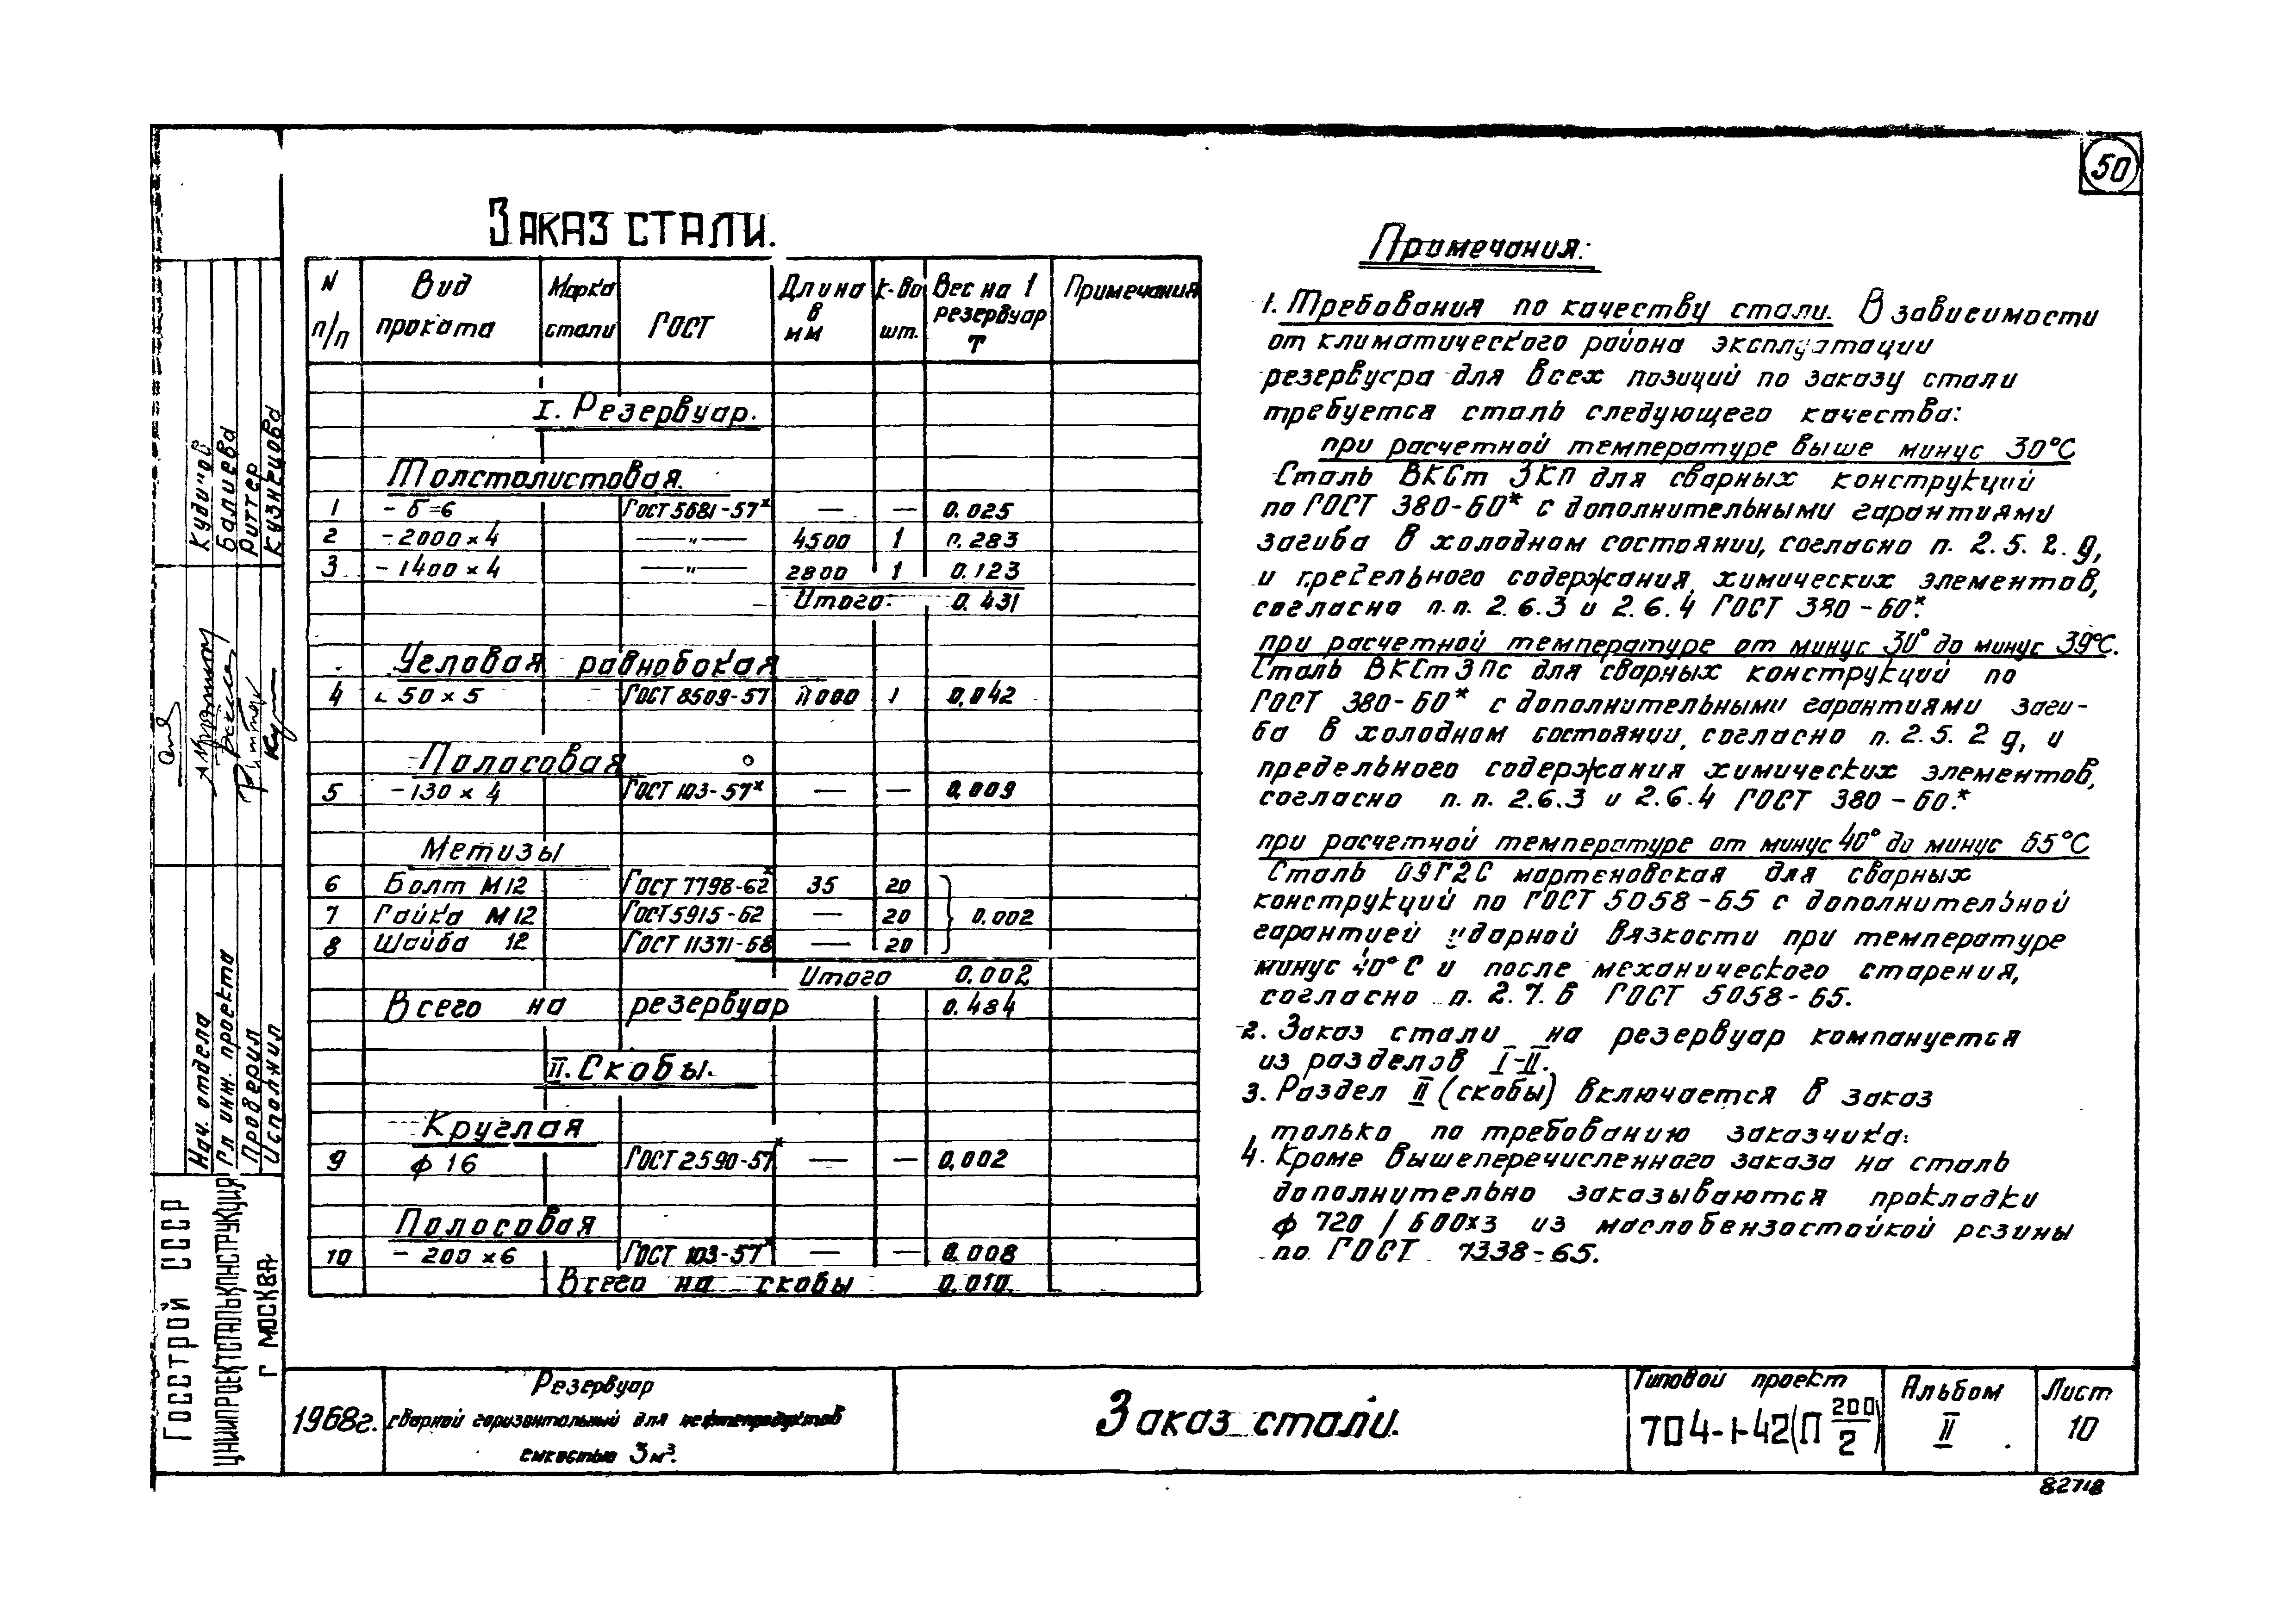 50
Заказ стали.
N п/п | Вид проката | Марка стали | ГОСТ | Длина в мм | к-во шт. | Вес на 1 резервуар т | Примечания
I. Резервуар.
Толстолистовая.
1 | - б=6 | ГОСТ 5681-57* | — | — | 0.025
2 | - 2000 × 4 | —"— | 4500 | 1 | 0.283
3 | - 1400 × 4 | —"— | 2800 | 1 | 0.123
Итого: 0.431
Угловая равнобокая
4 | ∟ 50 × 5 | ГОСТ 8509-57 | 11000 | 1 | 0,042
Полосовая
5 | - 130 × 4 | ГОСТ 103-57* | — | — | 0,009
Метизы
6 | Болт М12 | ГОСТ 7798-62* | 35 | 20
7 | Гайка М12 | ГОСТ 5915-62 | — | 20 | 0.002
8 | Шайба 12 | ГОСТ 11371-68 | — | 20
Итого 0.002
Всего на резервуар 0.484
II. Скобы.
Круглая
9 | ф 16 | ГОСТ 2590-57* | — | — | 0,002
Полосовая
10 | - 200 × 6 | ГОСТ 103-57* | — | — | 0.008
Всего на скобы 0.010
Примечания:
1. Требования по качеству стали. В зависимости
от климатического района эксплуатации
резервуара для всех позиций по заказу стали
требуется сталь следующего качества:
при расчетной температуре выше минус 30°С
Сталь ВКСт 3КП для сварных конструкций
по ГОСТ 380-60* с дополнительными гарантиями
загиба в холодном состоянии, согласно п. 2.5.2.д,
и предельного содержания химических элементов,
согласно п.п. 2.6.3 и 2.6.4 ГОСТ 380-60*.
при расчетной температуре от минус 30° до минус 39°С.
Сталь ВКСт 3Пс для сварных конструкций по
ГОСТ 380-60* с дополнительными гарантиями заги-
ба в холодном состоянии, согласно п. 2.5.2 д, и
предельного содержания химических элементов,
согласно п.п. 2.6.3 и 2.6.4 ГОСТ 380-60.*
при расчетной температуре от минус 40° до минус 65°С
Сталь 09Г2С мартеновская для сварных
конструкций по ГОСТ 5058-65 с дополнительной
гарантией ударной вязкости при температуре
минус 40°С и после механического старения,
согласно п. 2.7.в ГОСТ 5058-65.
2. Заказ стали на резервуар компануется
из разделов I-II.
3. Раздел II (скобы) включается в заказ
только по требованию заказчика.
4. Кроме вышеперечисленного заказа на сталь
дополнительно заказываются прокладки
ф 720 / 600×3 из маслобензостойкой резины
по ГОСТ 7338-65.
Нач. отдела Кудинов
Гл инж. проекта Балиева
Проверил Риттер
Исполнил Кузнецова
Госстрой СССР
ЦНИИПРОЕКТСТАЛЬКОНСТРУКЦИЯ
г МОСКВА
1968г.
Резервуар
сварной горизонтальный для нефтепродуктов
емкостью 3м³.
Заказ стали.
Типовой проект
704-1-42(П 200/2)
Альбом
II
Лист
10
82718